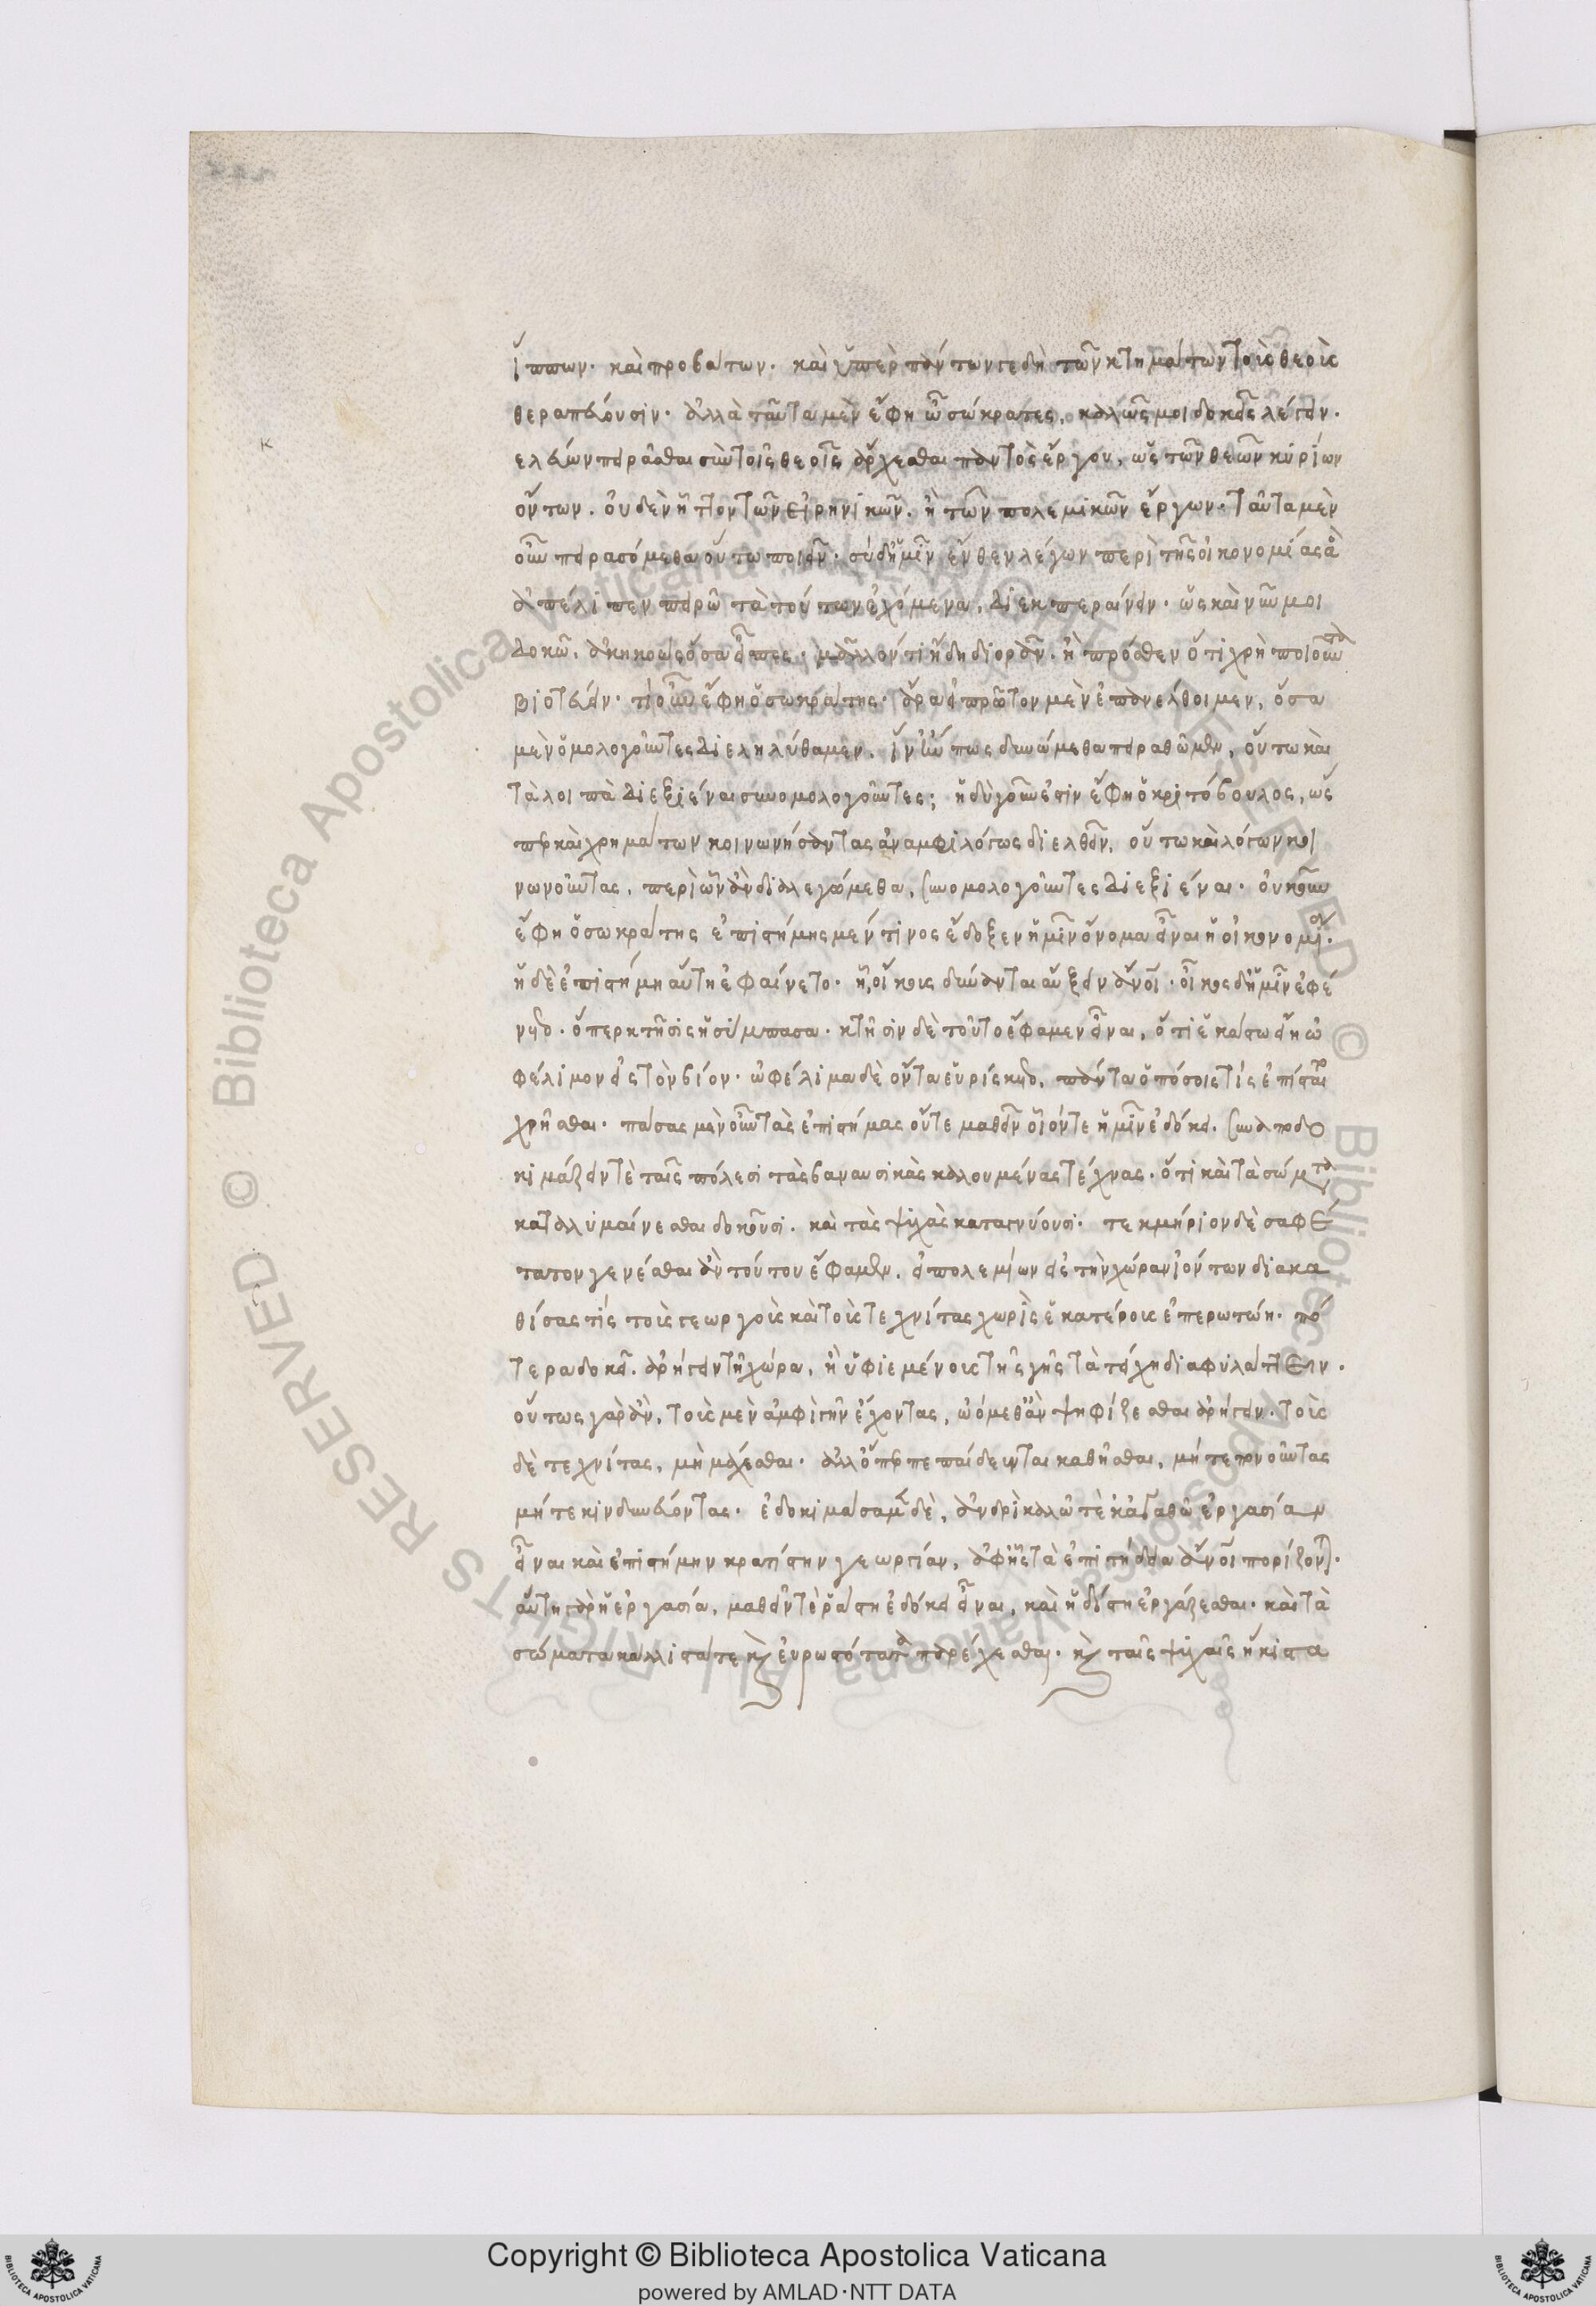 ἵππων. καὶ προβάτων. καὶ ὑπὲρ πάντων γε δὴ τῶν κτημάτων τοὺς θεοὺς
θεραπεύουσιν. ἀλλὰ ταῦτα μὲν ἔφη ὦ σώκρατες, καλῶς μοι δοκεῖς λέγειν.
κελεύων πειρᾶσθαι σὺν τοῖς θεοῖς ἄρχεσθαι παντὸς ἔργου, ὡς τῶν θεῶν κυρίων
ὄντων. οὐδὲν ἧττον τῶν εἰρηνικῶν. ἢ τῶν πολεμικῶν ἔργων. ταῦτα μὲν
οὖν πειρασόμεθα οὕτω ποιεῖν. σὺ δ' ἡμῖν ἔνθεν λέγων περὶ τῆς οἰκονομίας
ἀπέλιπες πειρῶ τὰ τούτων ἐχόμενα, διεκπεραίνειν. ὡς καὶ νῦν μοι
δοκῶ, ἀκηκοὼς ὅσα εἶπες. μᾶλλόν τι ἤδη διορᾶν. ἢ πρόσθεν ὅτι χρὴ ποιοῦντα
βιοτεύειν. τί οὖν ἔφη ὁ σωκράτης. ἆρα εἰ πρῶτον μὲν ἐπανέλθοιμεν, ὅσα
μὲν ὁμολογοῦντες διεληλύθαμεν. ἵν' ἤν πως δυνώμεθα πειραθῶμεν, οὕτω καὶ
τὰ λοιπὰ διεξιέναι συνομολογοῦντες; ἡδὺ γοῦν ἐστὶν ἔφη ὁ κριτόβουλος, ὥς
περ καὶ χρημάτων κοινωνήσαντας ἀναμφιλόγως διελθεῖν, οὕτω καὶ λόγων κοι
νωνοῦντας, περὶ ὧν ἂν διαλεγώμεθα, συνομολογοῦντες διεξιέναι. οὐκοῦν
ἔφη ὁ σωκράτης ἐπιστήμης μέν τινος ἔδοξεν ἡμῖν ὄνομα εἶναι ἡ οἰκονομία.
ἡ δὲ ἐπιστήμη αὕτη ἐφαίνετο. ᾗ οἴκους δύνανται αὔξειν ἄνθρωποι. οἶκος δ' ἡμῖν ἐφαί
νετο. ὅπερ κτῆσις ἡ σύμπασα. κτῆσιν δὲ τοῦτο ἔφαμεν εἶναι, ὅτι ἑκάστῳ εἴη ὠ
φέλιμον εἰς τὸν βίον. ὠφέλιμα δὲ ὄντα εὑρίσκετο, πάντα ὁπόσοις τὶς ἐπίσταιτο
χρῆσθαι. πάσας μὲν οὖν τὰς ἐπιστήμας οὔτε μαθεῖν οἷόν τε ἡμῖν ἐδόκει. συναπεδο
κιμάζειν τὲ ταῖς πόλεσι τὰς βαναυσικὰς καλουμένας τέχνας. ὅτι καὶ τὰ σώματα
καταλυμαίνεσθαι δοκοῦσι. καὶ τὰς ψυχὰς καταγνύουσι. τεκμήριον δὲ σαφέ
στατον γενέσθαι ἂν τούτου ἔφαμεν, εἰ πολεμίων εἰς τὴν χώραν ἰόντων διακα
θίσας τίς τοὺς γεωργοὺς καὶ τοὺς τεχνίτας χωρὶς ἑκατέρους ἐπερωτῴη. πό
τερα δοκεῖ. ἀρήγειν τῇ χώρᾳ, ἢ ὑφιεμένους τῆς γῆς τὰ τείχη διαφυλάττειν.
οὕτως γὰρ ἂν, τοὺς μὲν ἀμφὶ γῆν ἔχοντας, ᾠόμεθ' ἂν ψηφίζεσθαι ἀρήγειν. τοὺς
δὲ τεχνίτας, μὴ μάχεσθαι. ἀλλ' ὅπερ πεπαίδευνται καθῆσθαι, μήτε πονοῦντας
μήτε κινδυνεύοντας. ἐδοκιμάσαμεν δὲ, ἀνδρὶ καλῷ τὲ κἀγαθῷ ἐργασίαν
εἶναι καὶ ἐπιστήμην κρατίστην γεωργίαν, ἀφ' ἧς τὰ ἐπιτήδεια ἄνθρωποι πορίζονται.
αὕτη γὰρ ἡ ἐργασία, μαθεῖν τὲ ῥᾴστη ἐδόκει εἶναι, καὶ ἡδίστη ἐργάζεσθαι. καὶ τὰ
σώματα κάλλιστά τε καὶ εὐρωστότατα παρέχεσθαι. καὶ ταῖς ψυχαῖς ἥκιστα